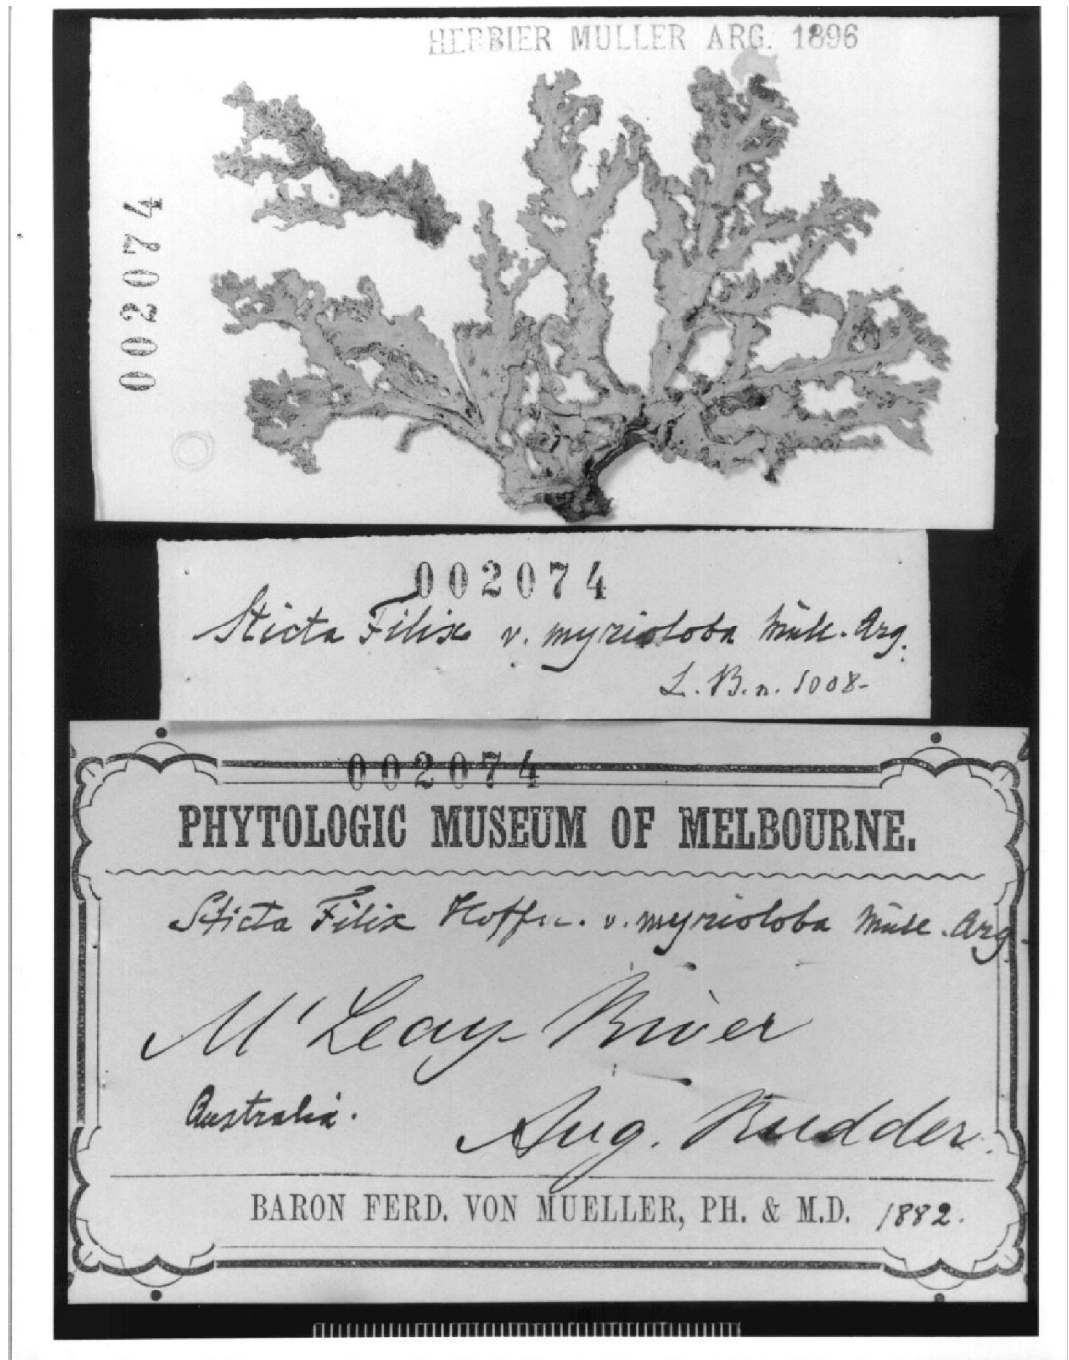 HERBIER MULLER ARG. 1896
002074
002074
Sticta Filix v. myrioloba Müll. Arg.
L. B. n. 1008-
002074
PHYTOLOGIC MUSEUM OF MELBOURNE.
Sticta Filix Hoffm. v. myrioloba Müll. Arg.
M'Leay River
Australia.
Aug. Rudder.
BARON FERD. VON MUELLER, PH. & M.D. 1882.